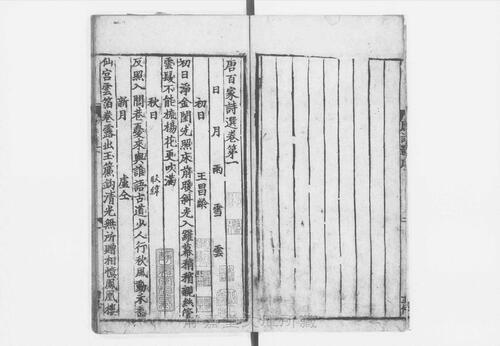 唐百家詩選卷第一
日 月 雨 雪 雲
初日 王昌齡
初日淨金閨先照床前暖斜光入羅幕稍稍親絲管
雲髮不能梳楊花更吹滿
秋日 耿緯
反照入閭巷憂來與誰語古道少人行秋風動禾黍
新月 盧仝
仙宮雲箔卷露出玉簾鈎清光無所贈相憶鳳凰樓